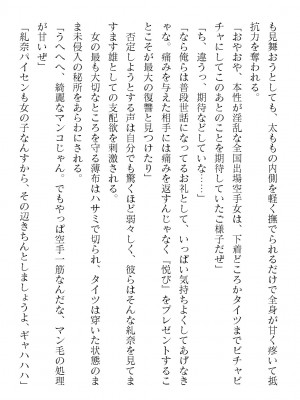 も見舞おうとしても、太ももの内側を軽く撫でられるだけで全身が甘く疼いて抵
抗力を奪われる。
「おやおや、本性が淫乱な全国出場空手女は、下着どころかタイツまでビチャビ
チャにしてこのあとのことを期待していたご様子だぜ」
「ち、違うっ、期待などしていな……」
「なら俺らは普段世話になってるお礼として、いっぱい気持ちよくしてあげなき
ゃな。痛みを与えた相手には痛みを返すんじゃなく『悦び』をプレゼントするこ
とこそが最大の復讐と見つけたり」
否定しようとする声は自分でも驚くほど弱々しく、彼らはそんな紀奈を見てま
すます雄としての支配欲を刺激される。
女の最も大切なところを守る薄布はハサミで切られ、タイツは穿いた状態のま
ま未侵入の秘所をあらわにされる。
「うへへへ、綺麗なマンコじゃん。でもやっぱ空手一筋なんだな、マン毛の処理
が甘いぜ」
「紀奈パイセンも女の子なんすから、その辺きちんとしましょうよ、ギャハハハ」